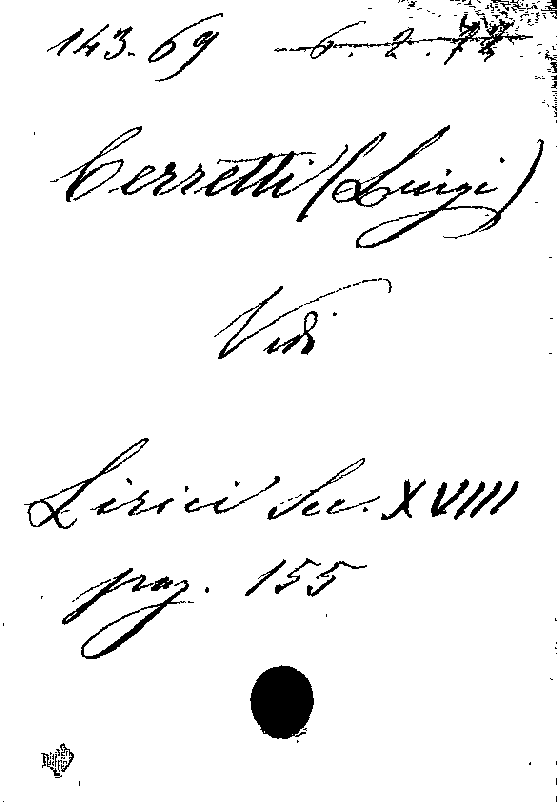 143.69 6.2.72
Cerretti (Luigi)
Vedi
Lirici Sec. XVIII
pag. 155